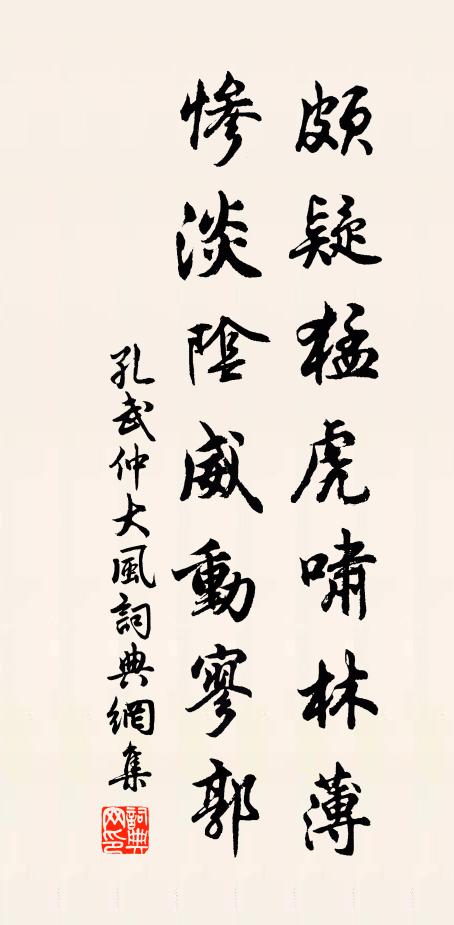 頗疑猛虎嘯林薄
慘淡陰威動寥郭
孔武仲大風詞典網集
詞典網印